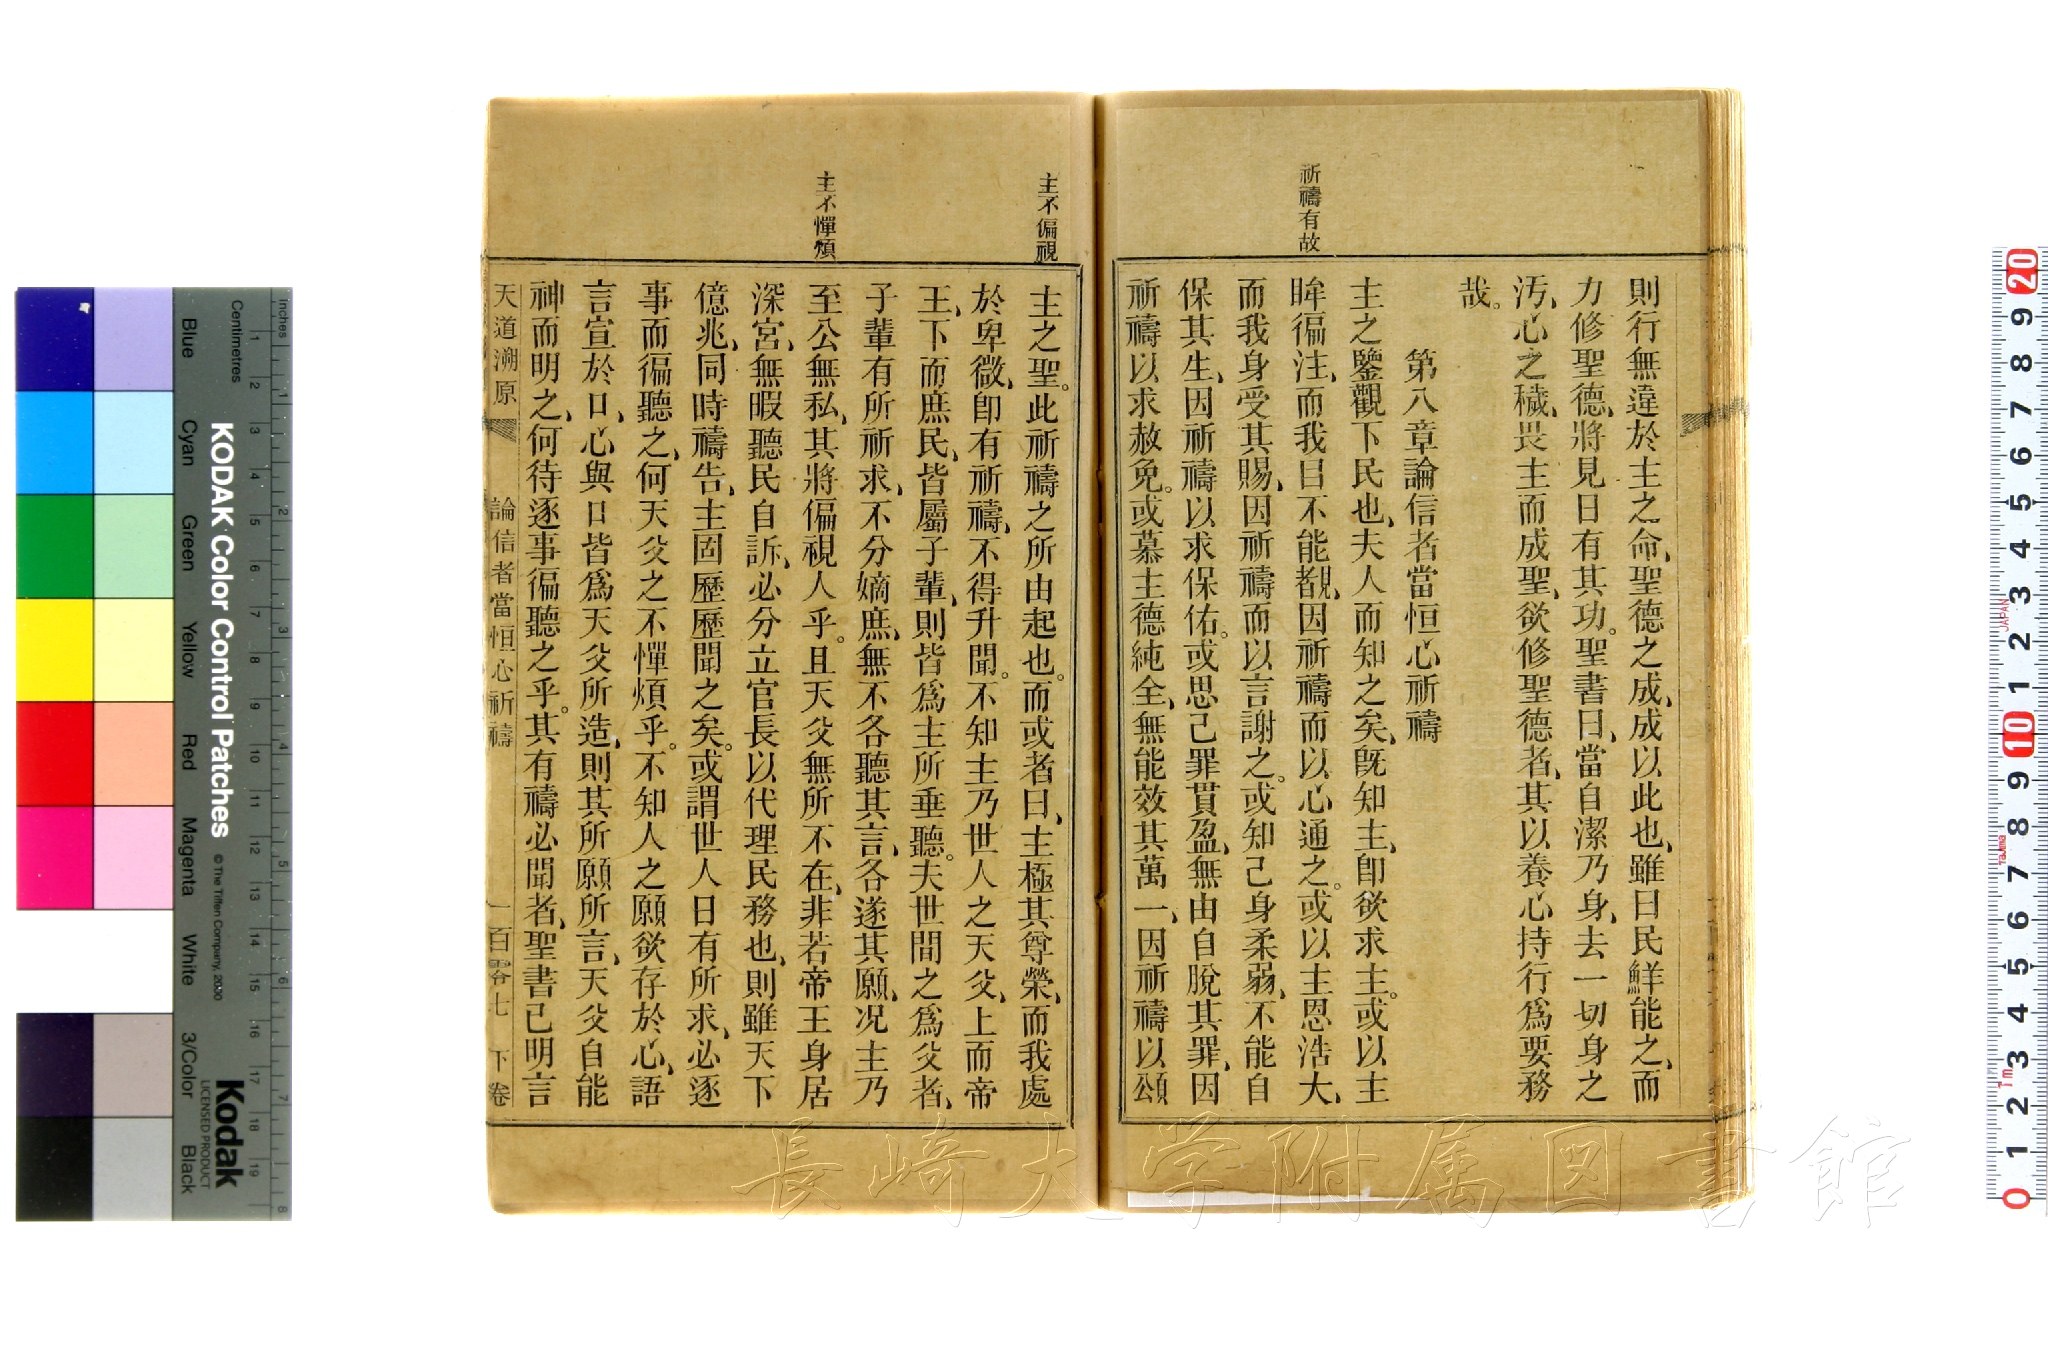 祈禱有故
則行無違於主之命、聖德之成、成以此也、雖曰民鮮能之、而
力修聖德、將見日有其功。聖書曰、當自潔乃身、去一切身之
汚、心之穢、畏主而成聖、欲修聖德者、其以養心持行爲要務
哉。
第八章論信者當恒心祈禱
主之鑒觀下民也、夫人而知之矣、旣知主、卽欲求主。或以主
眸徧注、而我目不能覩、因祈禱而以心通之。或以主恩浩大、
而我身受其賜、因祈禱而以言謝之。或知己身柔弱、不能自
保其生、因祈禱以求保佑。或思己罪貫盈、無由自脫其罪、因
祈禱以求赦免。或慕主德純全、無能效其萬一、因祈禱以頌
主不偏視
主不憚煩
主之聖。此祈禱之所由起也。而或者曰、主極其尊榮、而我處
於卑微、卽有祈禱、不得升聞。不知主乃世人之天父、上而帝
王、下而庶民、皆屬子輩、則皆爲主所垂聽。夫世間之爲父者、
子輩有所祈求、不分嫡庶、無不各聽其言、各遂其願、况主乃
至公無私、其將偏視人乎。且天父無所不在、非若帝王身居
深宮、無暇聽民自訴、必分立官長以代理民務也、則雖天下
億兆、同時禱告、主固歷歷聞之矣。或謂世人日有所求、必逐
事而徧聽之、何天父之不憚煩乎。不知人之願欲存於心、語
言宣於口、心與口皆爲天父所造、則其所願所言、天父自能
神而明之、何待逐事徧聽之乎。其有禱必聞者、聖書已明言
天道溯原 論信者當恒心祈禱 一百零七 下卷
KODAK Color Control Patches
© The Tiffen Company, 2000
Kodak
LICENSED PRODUCT
Inches
Centimetres
Blue Cyan Green Yellow Red Magenta White 3/Color Black
1 2 3 4 5 6 7 8
1 2 3 4 5 6 7 8 9 10 11 12 13 14 15 16 17 18 19
20 9 8 7 6 5 4 3 2 1 10 9 8 7 6 5 4 3 2 1 0
JAPAN
Tajima
1m
長崎大学附属図書館